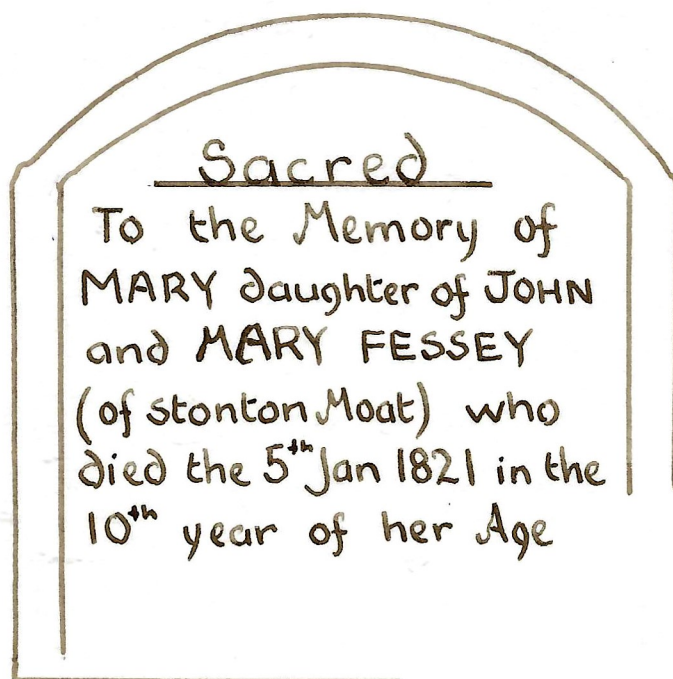 Sacred
To the Memory of
MARY daughter of JOHN
and MARY FESSEY
(of stonton Moat) who
died the 5th Jan 1821 in the
10th year of her Age